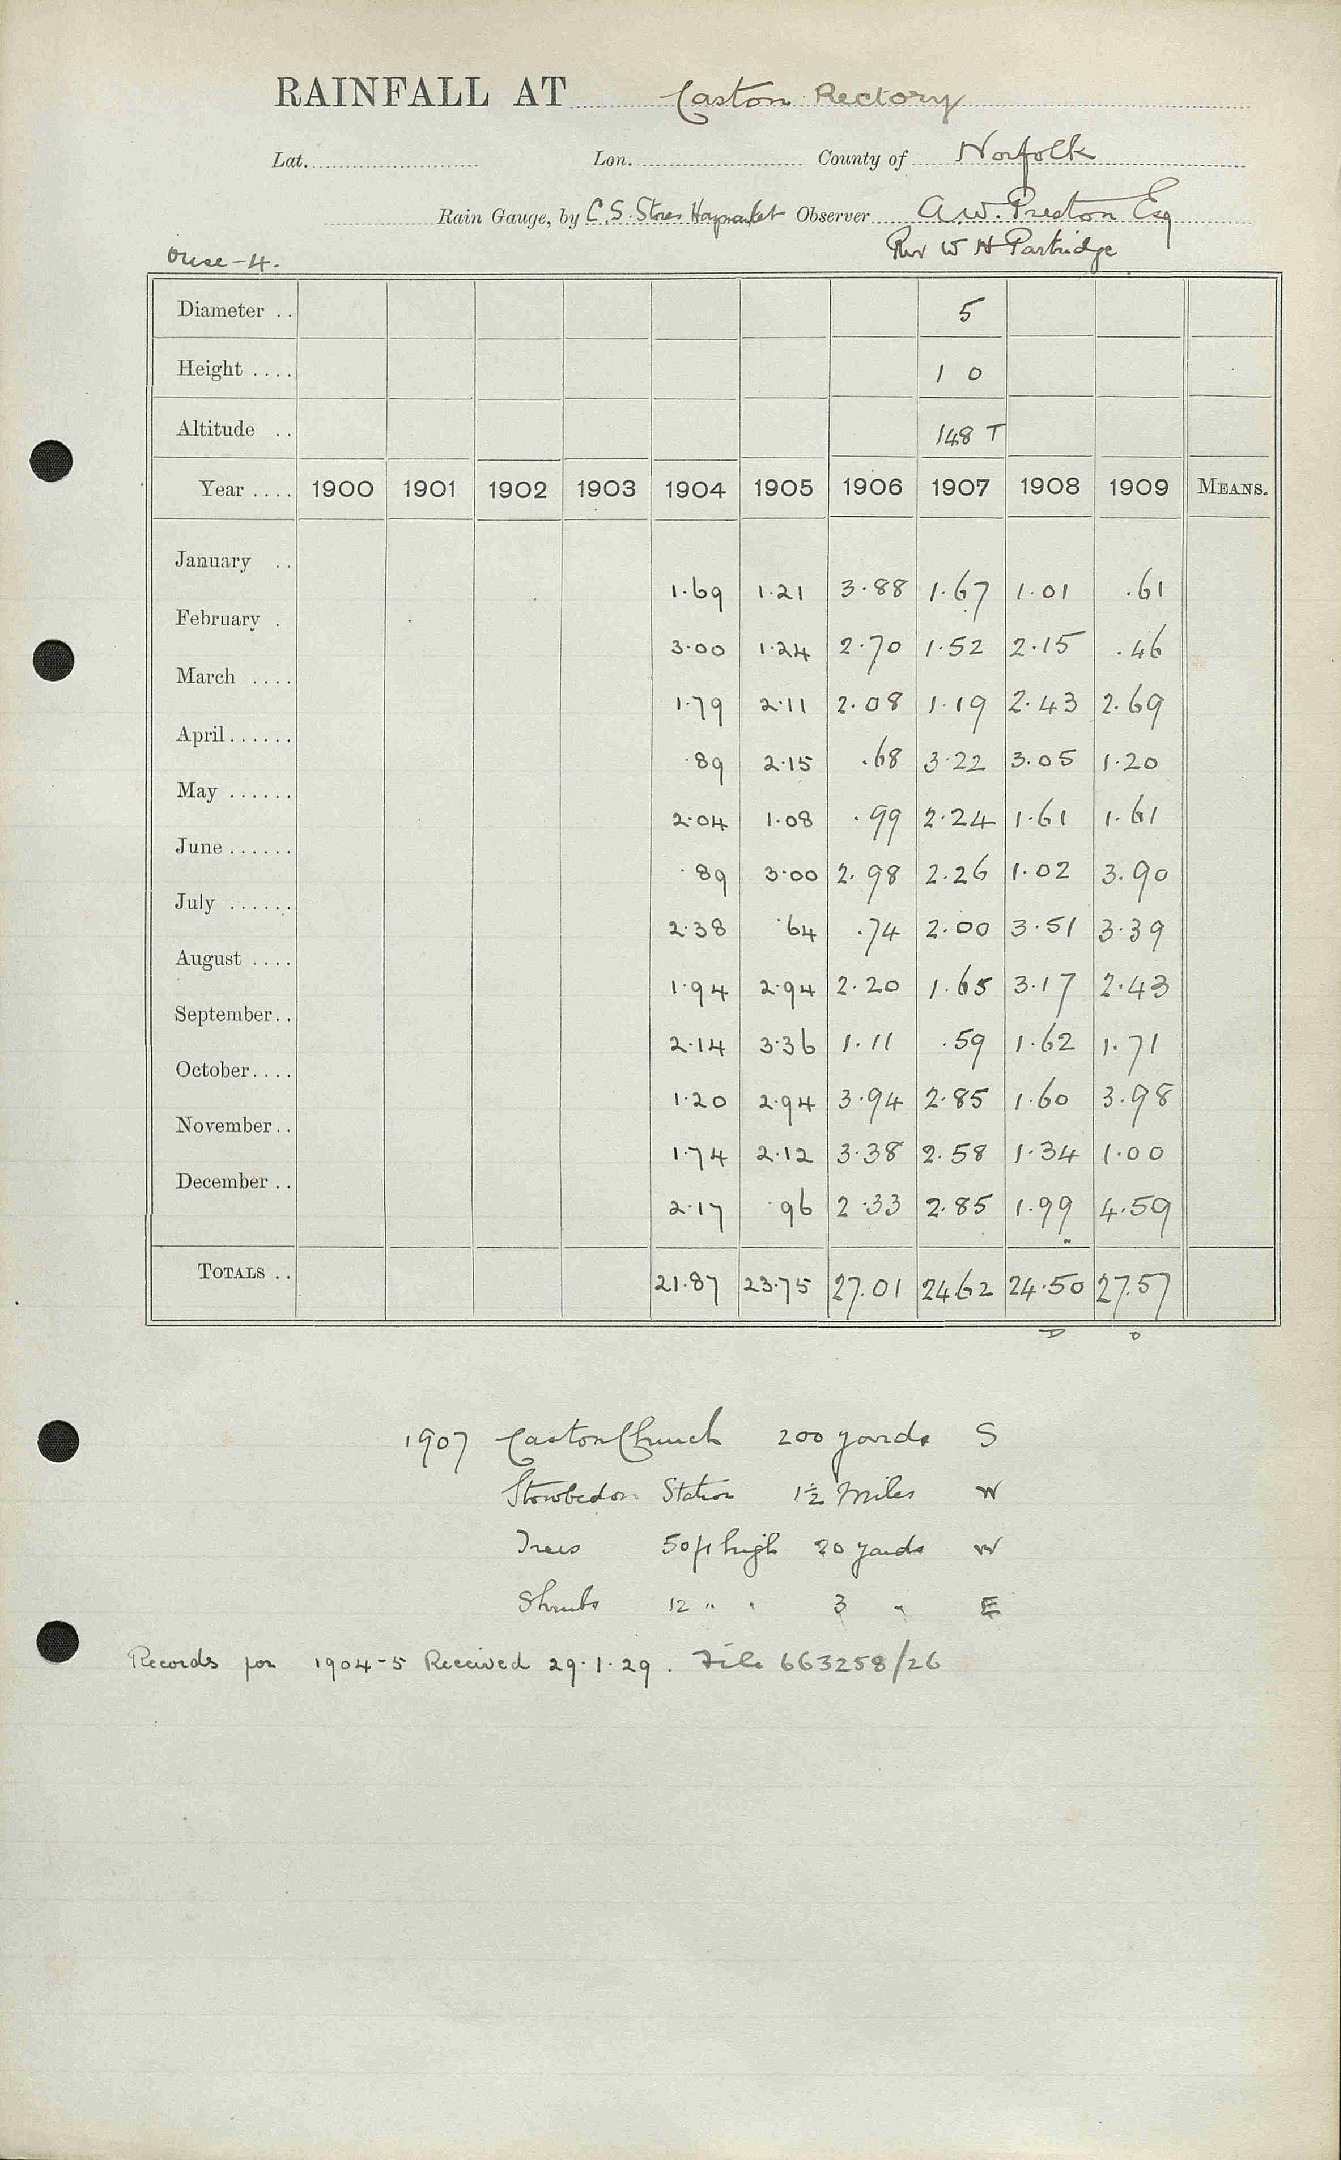 RAINFALL AT Caston Rectory
Lat. Lon. County of Norfolk
Rain Gauge, by C.S. Stores Haymarket Observer A.W. Preston Esq
Ouse-4. Rev W H Partridge
Diameter .. 5
Height .... 1 0
Altitude .. 148 T
Year .... 1900 1901 1902 1903 1904 1905 1906 1907 1908 1909 MEANS.
January .. 1.69 1.21 3.88 1.67 1.01 .61
February . 3.00 1.24 2.70 1.52 2.15 .46
March .... 1.79 2.11 2.08 1.19 2.43 2.69
April...... .89 2.15 .68 3.22 3.05 1.20
May ...... 2.04 1.08 .99 2.24 1.61 1.61
June...... .89 3.00 2.98 2.26 1.02 3.90
July ...... 2.38 .64 .74 2.00 3.51 3.39
August .... 1.94 2.94 2.20 1.65 3.17 2.43
September.. 2.14 3.36 1.11 .59 1.62 1.71
October.... 1.20 2.94 3.94 2.85 1.60 3.98
November.. 1.74 2.12 3.38 2.58 1.34 1.00
December .. 2.17 .96 2.33 2.85 1.99 4.59
TOTALS .. 21.87 23.75 27.01 24.62 24.50 27.57
D D
1907 Caston Church 200 yards S
Stowbedon Station 1½ Miles W
Trees 50ft high 20 yards W
Shrubs 12 " " 3 " E
Records for 1904-5 Received 29.1.29. File 663258/26